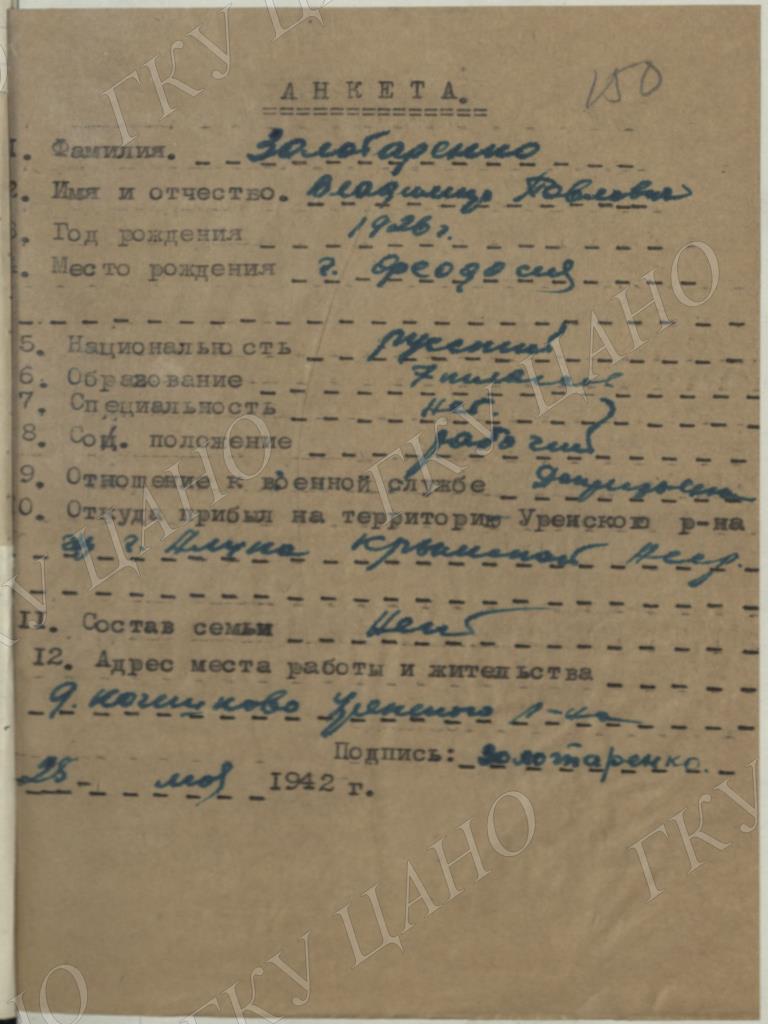 150
АНКЕТА.
1. Фамилия. Золотаренко
2. Имя и отчество. Владимир Павлович
3. Год рождения 1926 г.
4. Место рождения г. Феодосия
5. Национальность русский
6. Образование 7 классов
7. Специальность нет
8. Соц. положение рабочий
9. Отношение к военной службе
10. Откуда прибыл на территорию Уренского р-на
из г. Алупка Крымской АССР.
11. Состав семьи Нет
12. Адрес места работы и жительства
д. Уренского р-на
Подпись: Золотаренко.
25 мая 1942 г.
ГКУ ЦАНО
ГКУ ЦАНО
ГКУ ЦАНО
ГКУ ЦАНО
ГКУ